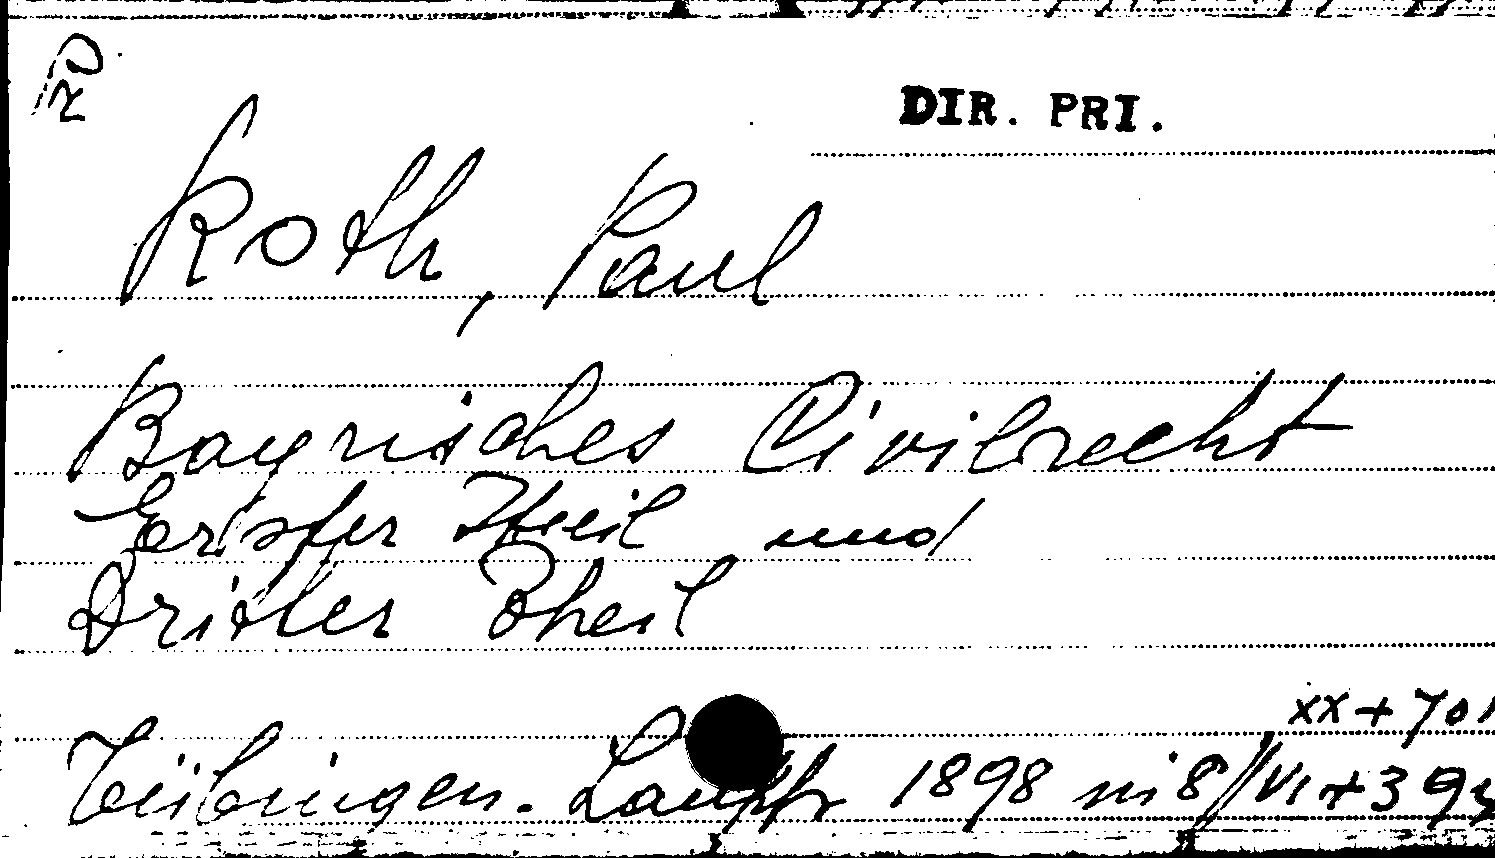 R
DIR. PRI.
Roth, Paul
Bayrisches Civilrecht
Erster Theil und
Dritter Theil
xx + 701
Tübingen. Laupp 1898 in 8 // VI + 393